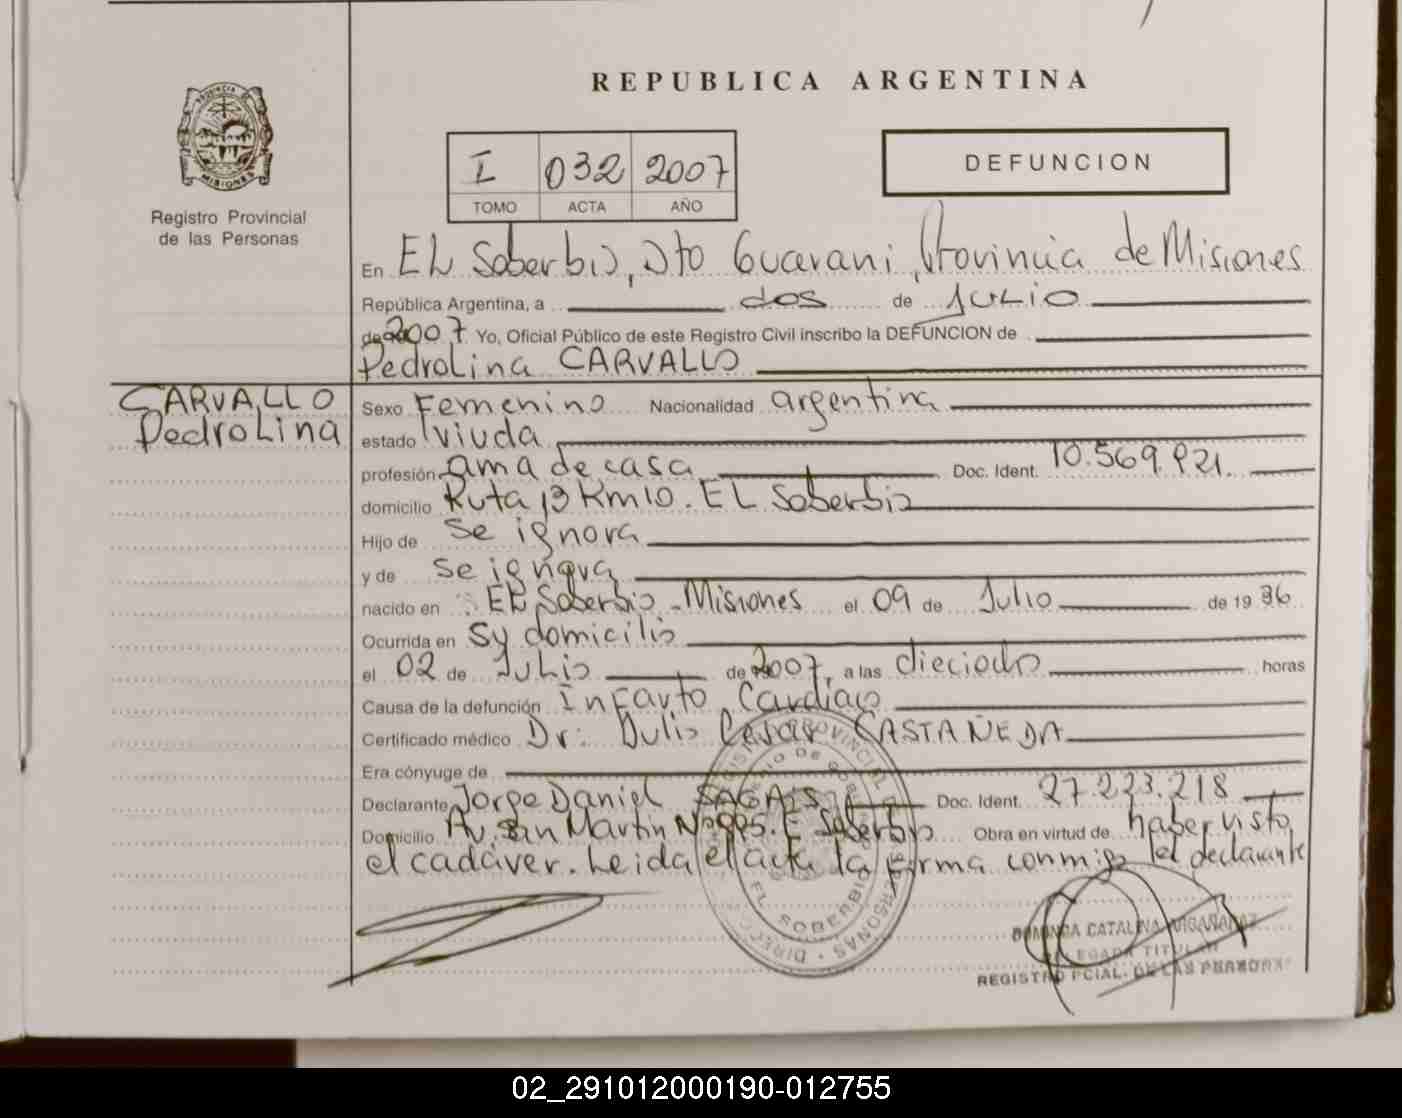 REPUBLICA ARGENTINA
PROVINCIA DE MISIONES
Registro Provincial
de las Personas
I 032 2007
TOMO ACTA AÑO
DEFUNCION
En EL Soberbio, Dto Guarani, Provincia de Misiones
República Argentina, a dos de JULIO
de 2007 Yo, Oficial Público de este Registro Civil inscribo la DEFUNCION de
PedroLina CARVALLO
CARVALLO
PedroLina
Sexo Femenino Nacionalidad argentina
estado viuda
profesión ama de casa Doc. Ident. 10.569.921.
domicilio Ruta 13 Km 10. EL Soberbio
Hijo de se ignora
y de se ignora
nacido en EL Soberbio - Misiones el 09 de Julio de 19 36
Ocurrida en su domicilio
el 02 de Julio de 2007, a las dieciocho horas
Causa de la defunción Infarto Cardiaco
Certificado médico Dr: Julio Cesar CASTAÑEDA
Era cónyuge de
Declarante Jorge Daniel Doc. Ident. 27.223.218
Domicilio Av. San Martin N° 995. E Soberbio Obra en virtud de haber visto
el cadáver. Leida el acta la firma conmigo el declarante
EL SOBERBIO
DOMINGA CATALINA
DELEGADA TITULAR
REGISTRO PCIAL. DE LAS PERSONAS
02_291012000190-012755